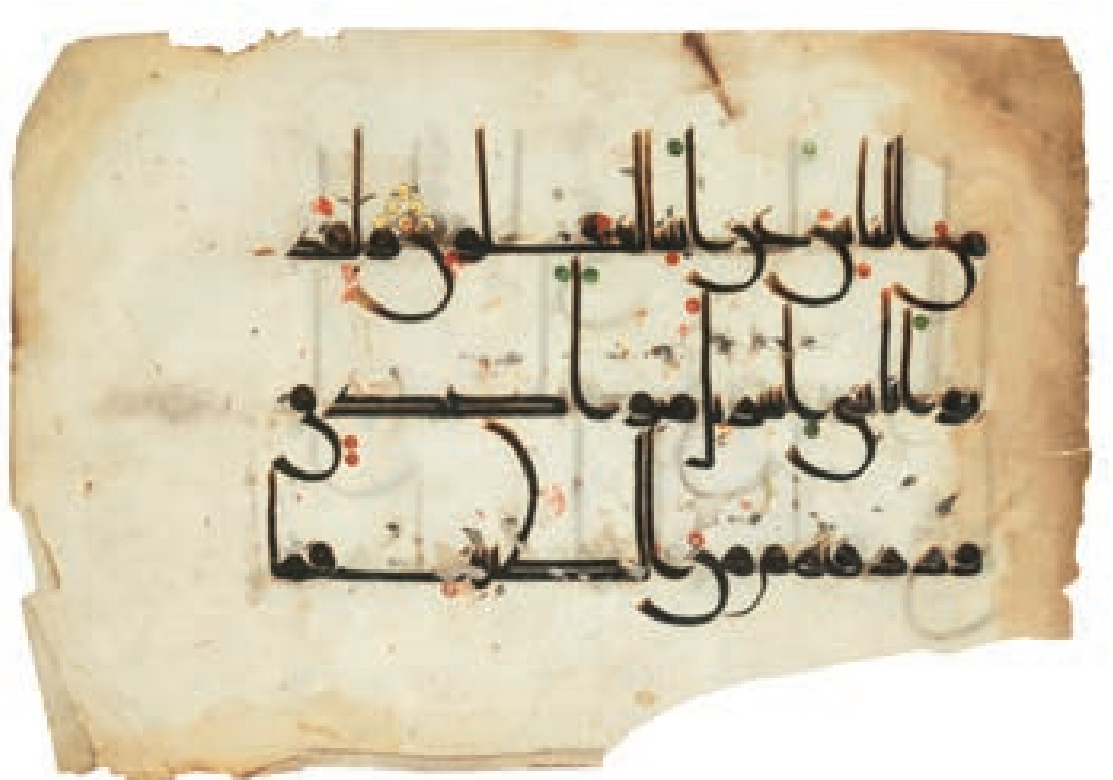 من الناس عن ايتنا لغفلون ولقد
بوانا بنى اسريل مبوا صدق
ورزقنهم من الطيبت فما